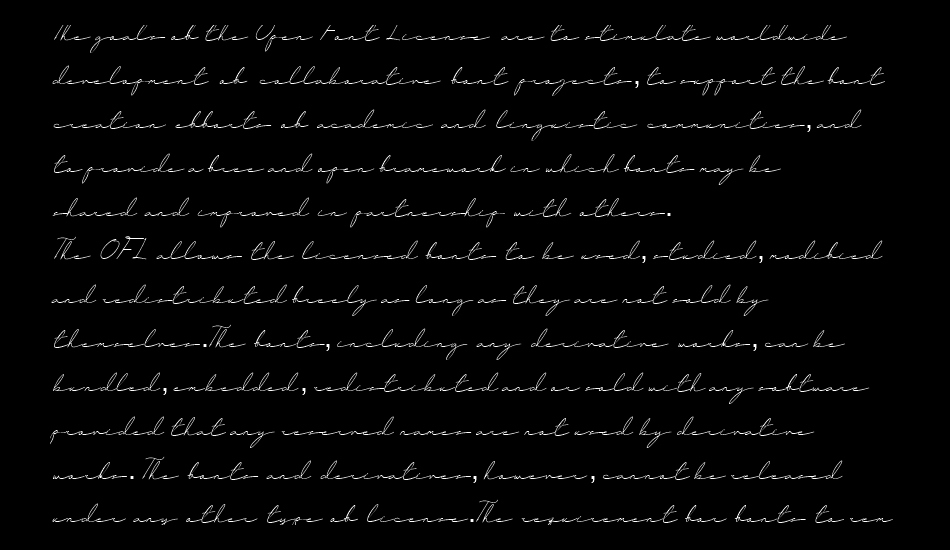 The goals of the Open Font License are to stimulate worldwide
development of collaborative font projects, to support the font
creation efforts of academic and linguistic communities, and
to provide a free and open framework in which fonts may be
shared and improved in partnership with others.
The OFL allows the licensed fonts to be used, studied, modified
and redistributed freely as long as they are not sold by
themselves. The fonts, including any derivative works, can be
bundled, embedded, redistributed and or sold with any software
provided that any reserved names are not used by derivative
works. The fonts and derivatives, however, cannot be released
under any other type of license. The requirement for fonts to rem